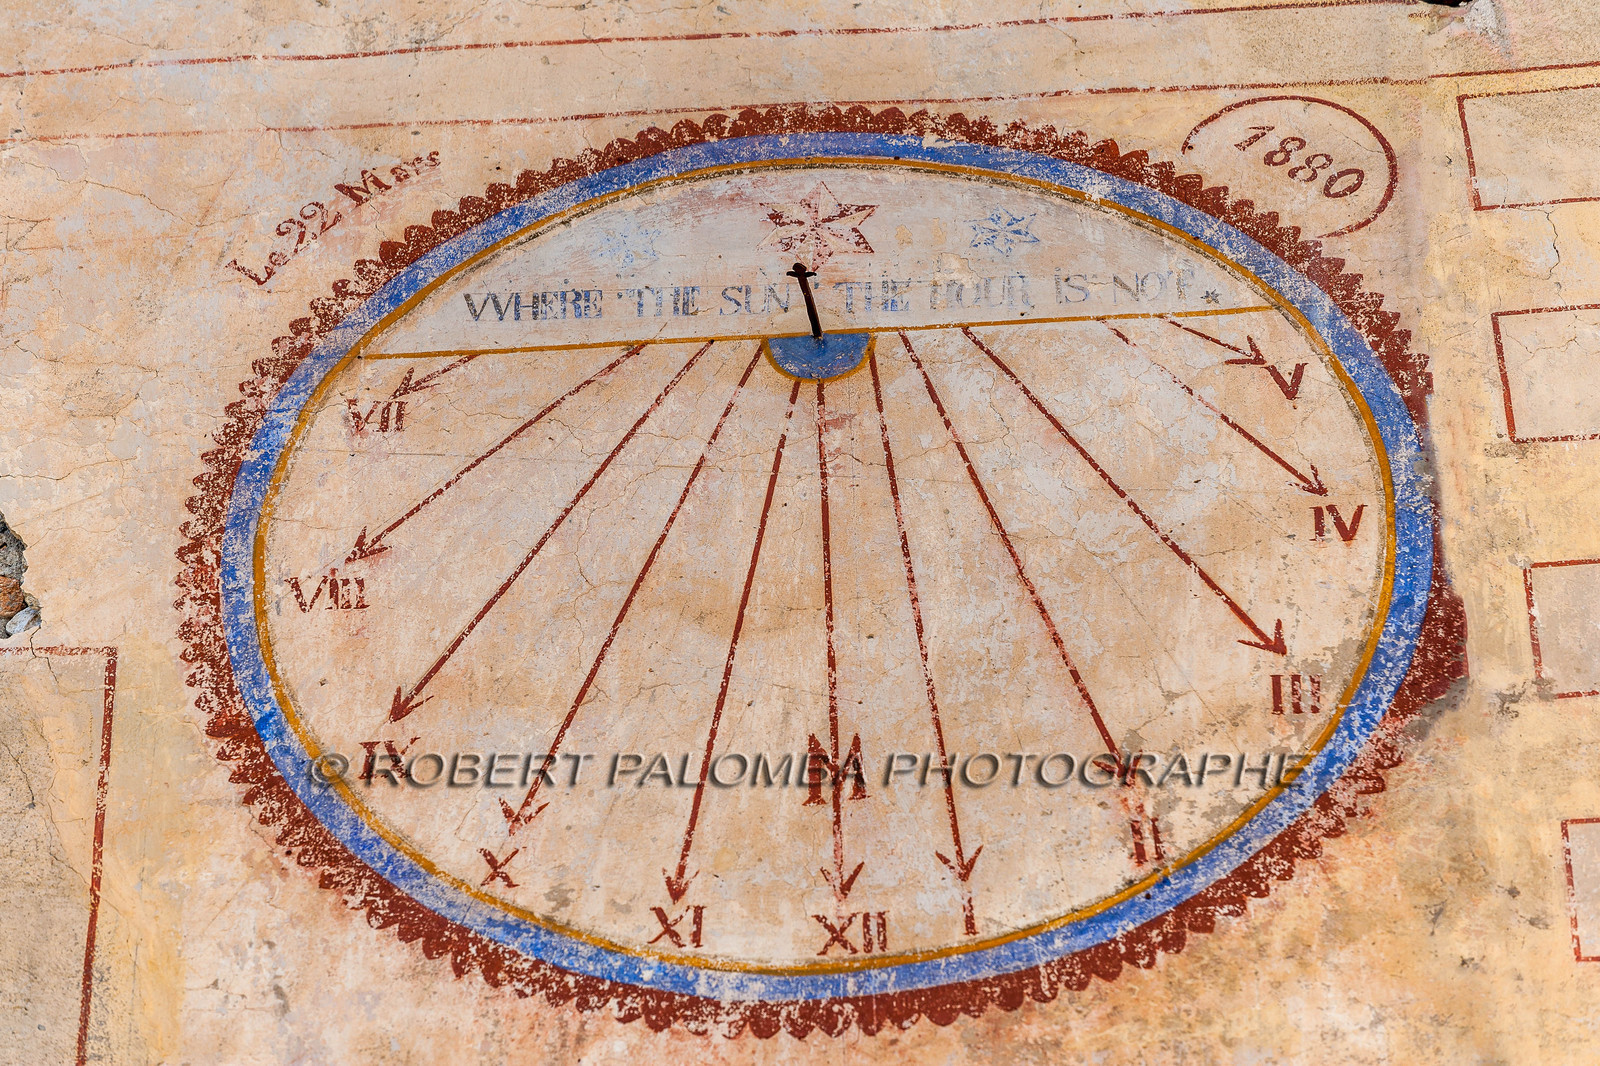 Le 22 Mars
1880
WHERE THE SUN THE HOUR IS NOT
VII
V
VIII
IV
IX
III
M
© ROBERT PALOMBA PHOTOGRAPHE
X
II
XI
XII
I